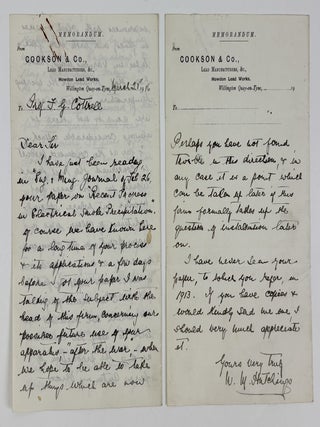 MEMORANDUM.
From
COOKSON & Co.,
LEAD MANUFACTURERS, &c.,
Howdon Lead Works,
Willington Quay-on-Tyne,
March 21 191
To Prof F. G. Cottrell
Dear Sir
I have just been reading
in Eng. & Ming. Journal of Feb 26
your paper on "Recent Progress
in Electrical Smoke Precipitation".
Of course we have known here
for a long time of your process
& its applications & a few days
before I got your paper I was
talking of the subject with the
head of this firm, concerning our
possible future use of your
apparatus, "after the war", when
we hope to be able to take
up things which are now
MEMORANDUM.
From
COOKSON & Co.,
LEAD MANUFACTURERS, &c.,
Howdon Lead Works,
Willington Quay-on-Tyne, 191
To
Perhaps you have not found
trouble in this direction & in
any case it is a point which
can be taken up later if this
firm formally takes up the
question of installation later
on.
I have never seen your
paper, to which you refer, in
1913. If you have copies &
would kindly send me one I
should very much appreciate
it.
Yours very truly
W. M. Hutchings